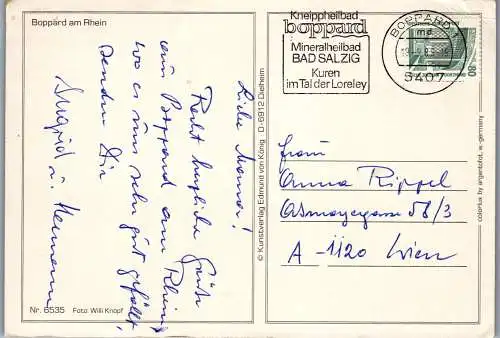 Boppard am Rhein
Liebe Mama!
Recht herzliche Grüße
aus Boppard am Rhein
wo es uns sehr gut gefällt,
senden Dir
Ingrid u. Hermann
Nr. 6535 Foto: Willi Knopf
© Kunstverlag Edmund von König · D-6912 Dielheim
Kneippheilbad
boppard
Mineralheilbad
BAD SALZIG
Kuren
im Tal der Loreley
BOPPARD 1
5407
80
Frau
Anna Rippel
Aßmayergasse 58/3
A - 1120 Wien
colorplus by engelbrohst, w.-germany